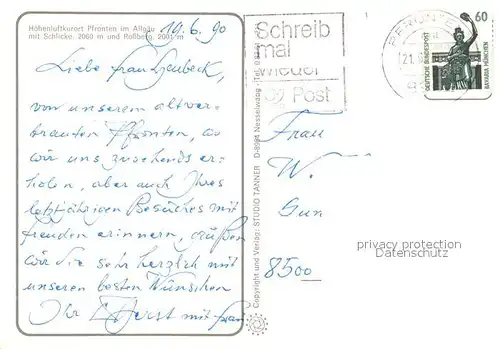 Höhenluftkurort Pfronten im Allgäu
mit Schlicke, 2060 m und Roßberg, 2001 m
19.6.90
Liebe Frau
von unserem altver-
trauten Pfronten, wo
wir uns zusehends er-
holen, aber auch Ihres
letztjährigen Besuches mit
Freuden erinnern, grüßen
wir Sie sehr herzlich mit
unseren besten Wünschen
Ihr Horst mit Frau
Schreib
mal
wieder
Post
PFRONTEN
21.
60
DEUTSCHE BUNDESPOST
BAVARIA MÜNCHEN
Copyright und Verlag: STUDIO TANNER D-8964 Nesselwang
Frau
W.
Gun
8500
privacy protection
Datenschutz